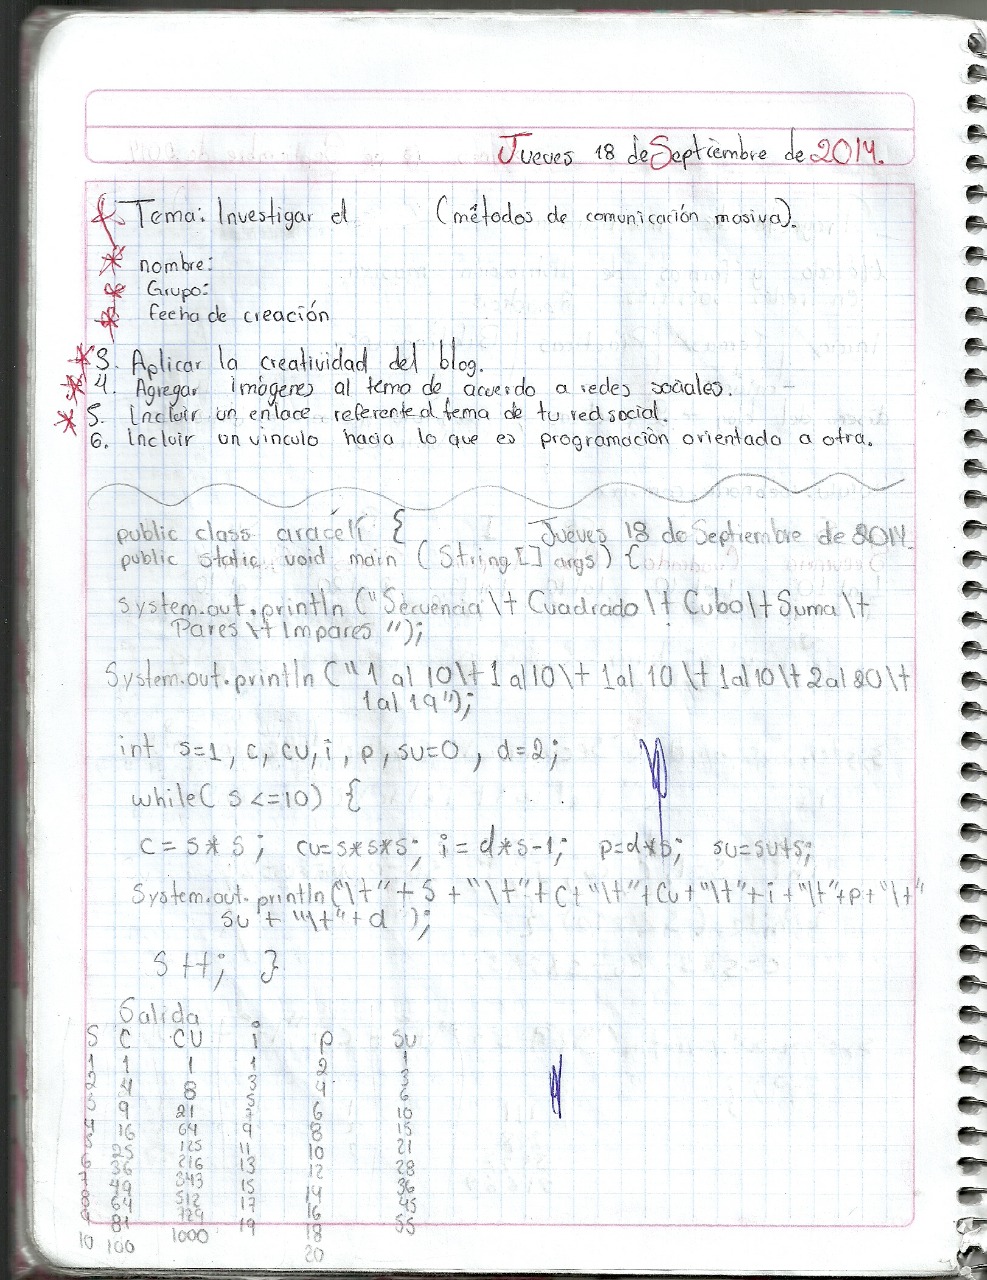 Jueves 18 de Septiembre de 2014.
Tema: Investigar el (métodos de comunicación masiva).
nombre:
Grupo:
fecha de creación
3. Aplicar la creatividad del blog.
4. Agregar imágenes al tema de acuerdo a redes sociales.
5. Incluir un enlace referente al tema de tu red social.
6. Incluir un vinculo hacia lo que es programación orientado a otra.
public class aracéli {
Jueves 18 de Septiembre de 2014.
public static void main (String [] args) {
system.out.println ("Secuencia \t Cuadrado \t Cubo \t Suma \t
Pares \t Impares ");
System.out.println ("1 al 10 \t 1 al 10 \t 1 al 10 \t 1 al 10 \t 2 al 20 \t
1 al 19");
int s=1, c, cu, i, p, su=0, d=2;
while( s <=10) {
c = s * s; cu=s*s*s; i = d*s-1; p=d*s; su=su+s;
System.out.println ("\t" + s + "\t" + c + "\t" + cu + "\t" + i + "\t" + p + "\t"
su + "\t" + d );
s ++; }
Salida
S C CU i p su
1 1 1 1 2 1
2 4 8 3 4 3
3 9 21 5 6 6
4 16 64 7 8 10
5 25 125 9 10 15
6 36 216 11 12 21
7 49 343 13 14 28
8 64 512 15 16 36
9 81 729 17 18 45
10 100 1000 19 20 55